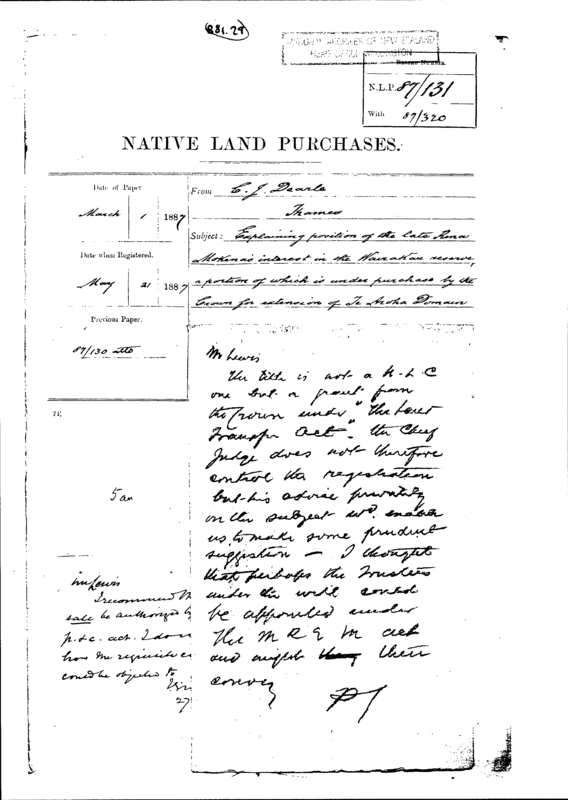 (881.29)
ARCHIVES OF NEW ZEALAND
HEAD OFFICE WELLINGTON
N.L.P. 87/131
With 87/320
NATIVE LAND PURCHASES.
Date of Paper
March 1 1887
Date when Registered.
May 21 1887
Previous Paper.
87/130 atto
From C. J. Dearle
Thames
Subject: Explaining position of the late Rina
Mokena's interest in the Wairakau reserve,
a portion of which is under purchase by the
Crown for extension of Te Aroha Domain
Mr Lewis
The title is not a N. L. C
one but a grant from
the Crown under "The Land
Transfer Act". The Chief
Judge does not therefore
control the registration
but his advice privately
on the subject wd. enable
us to make some prudent
suggestion — I thought
that perhaps the Trustees
under the will could
be appointed under
the M R E M act
and might they then
convey
5 an
Mr Lewis
I recommend th
sale be authorized b
p. & c. act. I don
how the requisite c
could be objected to
27